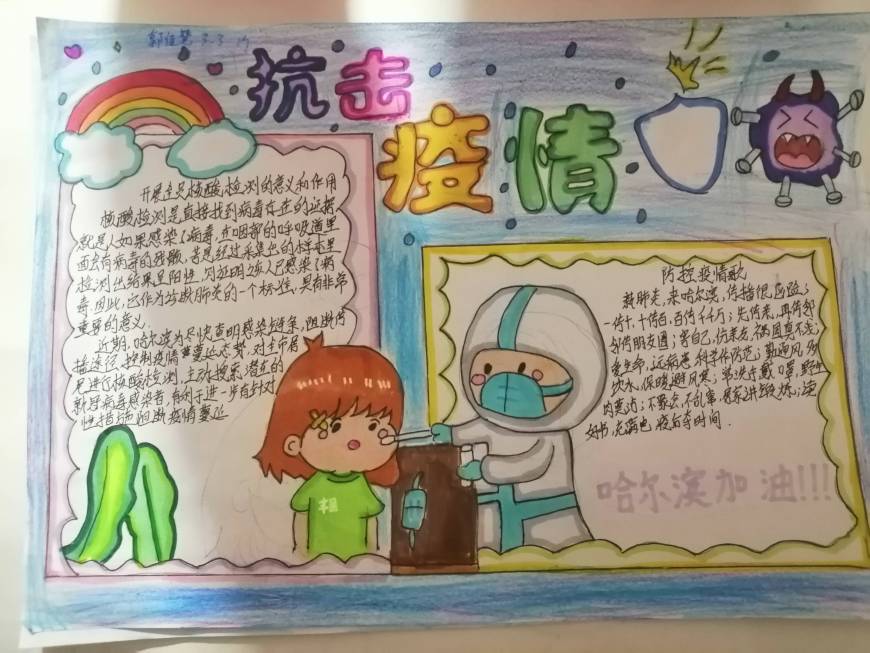 3.3
抗击
疫情
开展全员核酸检测的意义和作用
核酸检测是直接找到病毒存在的证据
就是人如果感染了病毒,在咽部的呼吸道里
面会有病毒的残骸,若是经过采集出的样本里
检测出结果呈阳性,则证明该人已感染了病
毒,因此,它作为诊断肺炎的一个标准,具有非常
重要的意义.
近期,哈尔滨为尽快查明感染链条,阻断传
播途径,控制疫情蔓延态势,对全市居
民进行核酸检测,主动搜索潜在的
新冠病毒感染者,有利于进一步有针对
性措施阻断疫情蔓延
防控疫情歌
新肺炎,来哈尔滨,传播很凶险;
一传十,十传百,百传千千万;先传亲,再传邻
邻传朋友圈;害自己,伤亲友,祸国臭不丢;
爱生命,远病患,科学作防范;勤通风,多
饮水,保暖避风寒;常洗手,戴口罩,野生
肉莫沾;不聚众,不乱窜,居家讲锻炼;读
好书,充满电,疫后夺时间.
哈尔滨加油!!!